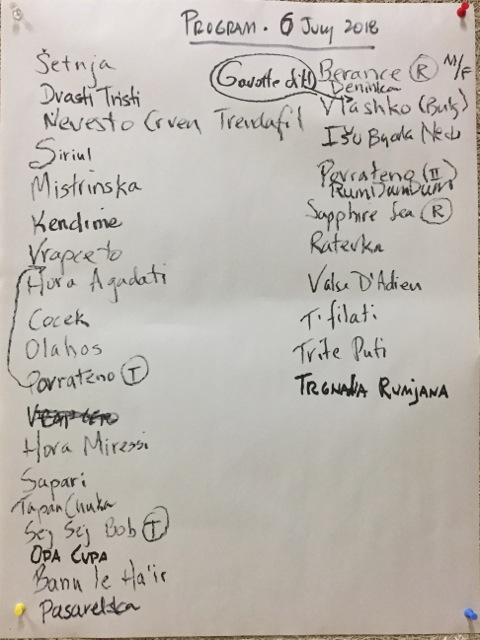 PROGRAM · 6 JULY 2018
Šetnja
Dvasti Tristi
Nevesto Crven Trendafil
Siriul
Mistrinska
Kendime
Vrapceto
Hora Agadati
Cocek
Olahos
Povrateno (T)
Hora Miressi
Sapari
Tapan Chuka
Sej Sej Bob (T)
OPA CUPA
Banu le Ha'ir
Pasarelska
Gavotte d'Hl
Berance (R) M/F
Deninka
Vlashko (Bulg)
Išu Byala Nedo
Povrateno (II)
RumDumDum
Sapphire Sea (R)
Ratevka
Valse D'Adieu
T'filati
Trite Puti
TRGNALA RUMJANA